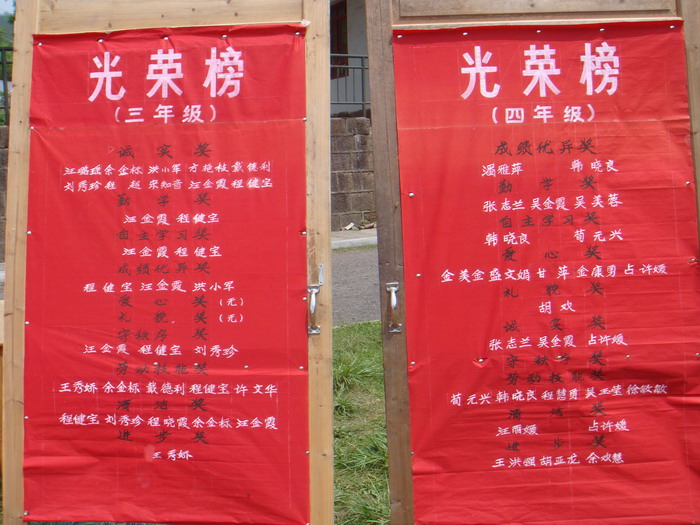 光荣榜
(三年级)
诚实奖
汪璐瑶余金标 洪小军 方艳枝戴德利
刘秀珍程 超 宋知音 汪金霞程健宝
勤学奖
汪金霞 程健宝
自主学习奖
汪金霞 程健宝
成绩优异奖
程健宝 汪金霞 洪小军
爱心奖(无)
礼貌奖(无)
守秩序奖
汪金霞 程健宝 刘秀珍
劳动技能奖
王秀娇 余金标 戴德利 程健宝 许文华
清洁奖
程健宝 刘秀珍 程晓霞 余金标 汪金霞
进步奖
王秀娇
光荣榜
(四年级)
成绩优异奖
雅萍 韩晓良
勤学奖
张志兰 吴金霞 吴美蓉
自主学习奖
韩晓良 荀元兴
爱心奖
金美金 盛文娟 甘萍 金康勇 占许媛
礼貌奖
胡欢
诚实奖
张志兰 吴金霞 占许媛
守秩序奖
劳动技能奖
荀元兴 韩晓良 程慧勇 吴玉莹 徐敏敏
清洁奖
汪丽媛 占许媛
进步奖
王洪强 胡亚龙 余欢慧